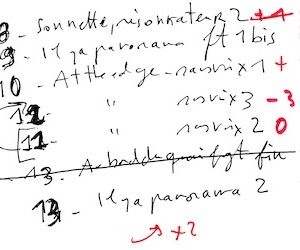 8 - Sonnette, résonnateur 2 +1
9 - Il ya panorama ft 1 bis
10 - At the edge - narvix 1 +
12 " narvix 3 - 3
11 - " narvix 2 0
13 - A bord de quai fgt fin
13 - Il ya panorama 2
+2